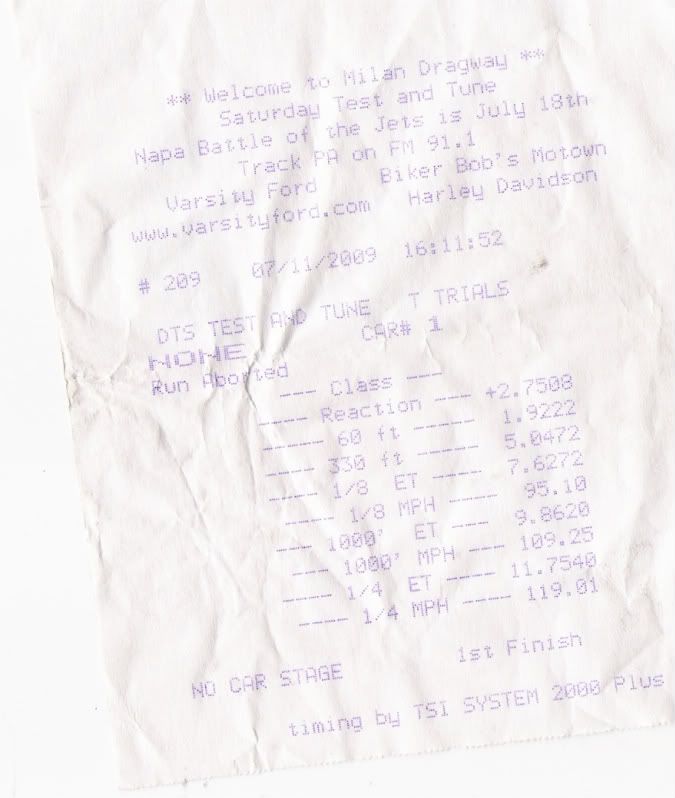 ** Welcome to Milan Dragway **
Saturday Test and Tune
Napa Battle of the Jets is July 18th
Track PA on FM 91.1
Varsity Ford Biker Bob's Motown
www.varsityford.com Harley Davidson
# 209 07/11/2009 16:11:52
DTS TEST AND TUNE T TRIALS
NONE CAR# 1
Run Aborted
--- Class ---
--- Reaction --- +2.7508
---- 60 ft ---- 1.9222
---- 330 ft ---- 5.0472
---- 1/8 ET ---- 7.6272
--- 1/8 MPH --- 95.10
--- 1000' ET --- 9.8620
--- 1000' MPH --- 109.25
---- 1/4 ET ---- 11.7540
---- 1/4 MPH ---- 119.01
NO CAR STAGE 1st Finish
timing by TSI SYSTEM 2000 Plus